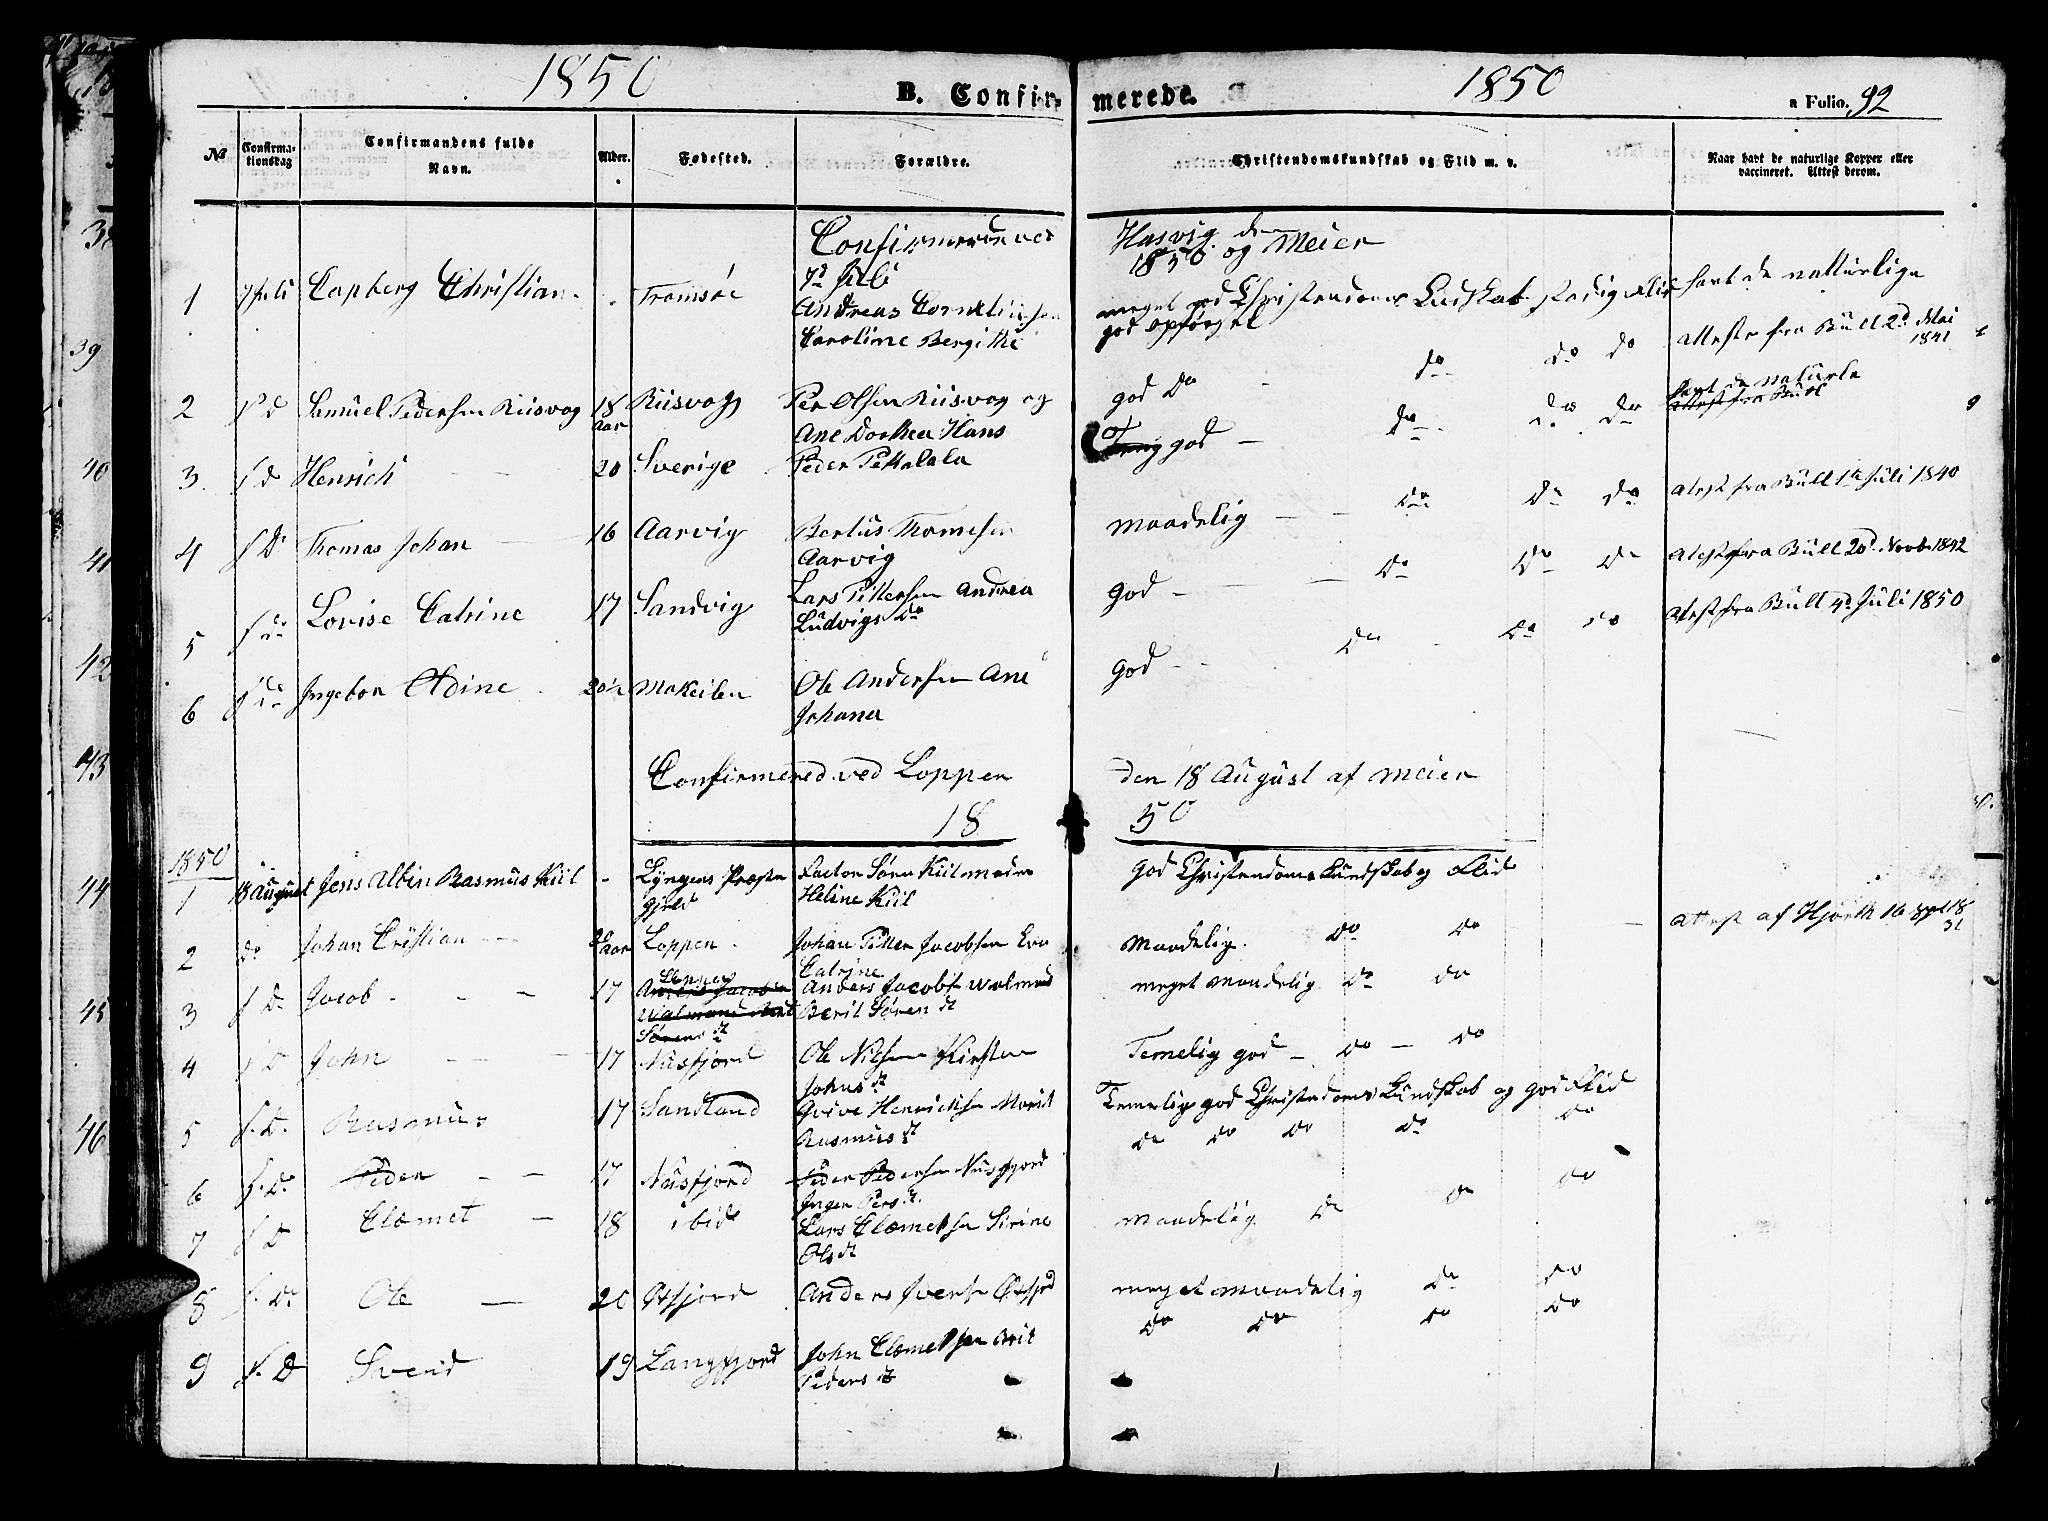 1850
B. Confirmerede.
1850
a Folio. 92
No
Confirmationsdag
Confirmandens fulde Navn.
Alder.
Fødested.
Forældre.
Christendomskundskab og Flid m. v.
Naar havt de naturlige Kopper eller vaccineret. Attest derom.
Confirmerede ved Hasvig d
7d Juli 1850 og Meier
1 7 Juli Capberg Christian. Tromsöe Andreas Cornelius
Caroline Bergithe
meget god Christendoms Kudskab stadig Flid havt de natturlige
god opförsel
2 d Samuel Pedersen Riisvog 18 Aar Riisvog Per Olsen Riisvog og
Ane Dorthea Hans
god Do do do do atteste fra Büll 2d Mai 1841
3 d Henrich 20 Sverige Peder Pekalala
god do do do
havt de naturle
attest fra Büll
4 Do Thomas Johan 16 Aarvig Bertus Thomesen
Aarvig
maadelig do do do atest fra Büll 1te Juli 1840
5 do Lovise Catrine 17 Sandvig Lars Pettersen Andrea
Ludvigs do
god do do do atest fra Büll 20d Novb 1842
6 do Ingebor Edine 20½ Makeilen Ole Andersen Ane
Johana
god do do do atest fra Bull 4d Juli 1850
Confirmered ved Loppen den 18 August af Meier
18 50
1850
1 18 August Jens Albin Rasmus Kiil Lyngens Præste
gjeld
Factor Sörn Kiil moder
Heline Kiil
god Christendoms Kundskab og Flid
2 do Johan Cristian 20 aar Loppen Johan Peter Jacobsen Eva
Catrine
Maadelig do do attest af Hjorth 16 Sept 18
31
3 D Jacob 17 Anders Jacobs Walmand
Berit Sören dt
meget maadelig do do
4 D John 17 Nusfjord Ole Nilsen Kirsten
Johns dt
Temelig god do do
5 D. Rasmus 17 Sandland Henricksen Marit
Rasmus dt
Temelig god Christendoms Kundskab og god Flid
6 Do Peder 17 Nusfjord Peder Pedersen Nusfjord
Inger Pers dt
do do do do do
7 D Clemet 18 ibid Lars Clemetsen Sirine
Ols dt
maadelig do do do
8 Do Ole 20 Öxfjord Anders Iversen Öxfjord
meget maadelig do do
9 D Svend 19 Langfjord John Clemetsen Brit
Peders dt
do do do do
38
39
40
41
42
43
44
45
46